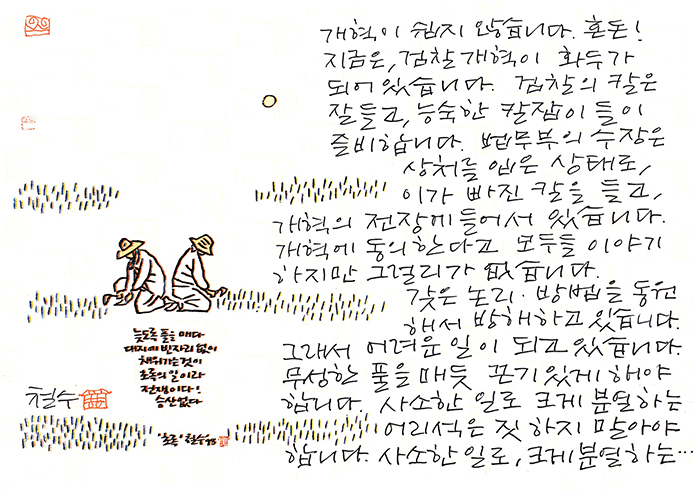 개혁이 쉽지 않습니다. 혼돈!
지금은, 검찰개혁이 화두가
되어 있습니다. 검찰의 칼은
잘들고, 능숙한 칼잡이들이
즐비합니다. 법무부의 수장은
상처를 입은 상태로,
이가 빠진 칼을 들고,
개혁의 전장에 들어서 있습니다.
개혁에 동의한다고 모두들 이야기
하지만 그럴리가 없습니다.
갖은 논리·방법을 동원
해서 방해하고 있습니다.
그래서 어려운 일이 되고 있습니다.
무성한 풀을 매듯 끈기있게 해야
합니다. 사소한 일로 크게 분열하는
어리석은 짓 하지 말아야
합니다. 사소한 일로, 크게 분열하는…
늦도록 풀을 매다
대지에 빈자리 없이
채워가는것이
초록의 일이라
전쟁이다!
승산없다
철수
초록' 철수